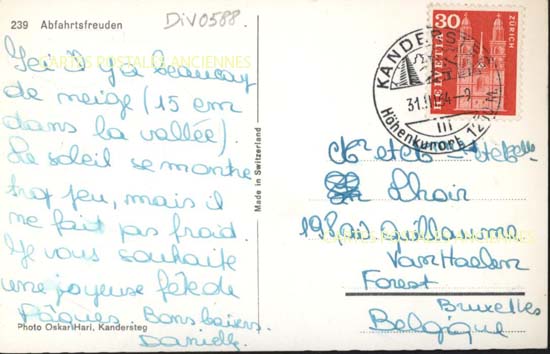 239 Abfahrtsfreuden
DIV0588.
Ici il y a beaucoup
de neige (15 cm
dans la vallée).
Le soleil se montre
trop peu, mais il
ne fait pas froid.
Je vous souhaite
une joyeuse fête de
Pâques. Bons baisers.
Danielle
Photo Oskar Hari, Kandersteg
Made in Switzerland
CARTES POSTALES ANCIENNES
KANDERSTEG
31.III.64-9
Höhenkurort 1200 m
30
HELVETIA
ZÜRICH
Lhoir
198 av Guillaume
Van Haelen
Forest
Bruxelles
Belgique
CARTES POSTALES ANCIENNES